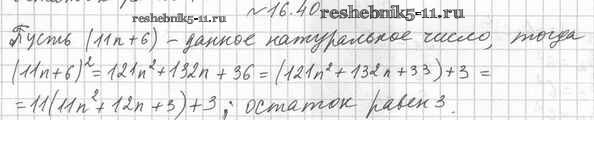 №16.40 reshebnik5-11.ru
reshebnik5-11.ru
Пусть (11n+6) – данное натуральное число, тогда
(11n+6)² = 121n² + 132n + 36 = (121n² + 132n + 33) + 3 =
= 11(11n² + 12n + 3) + 3; остаток равен 3.